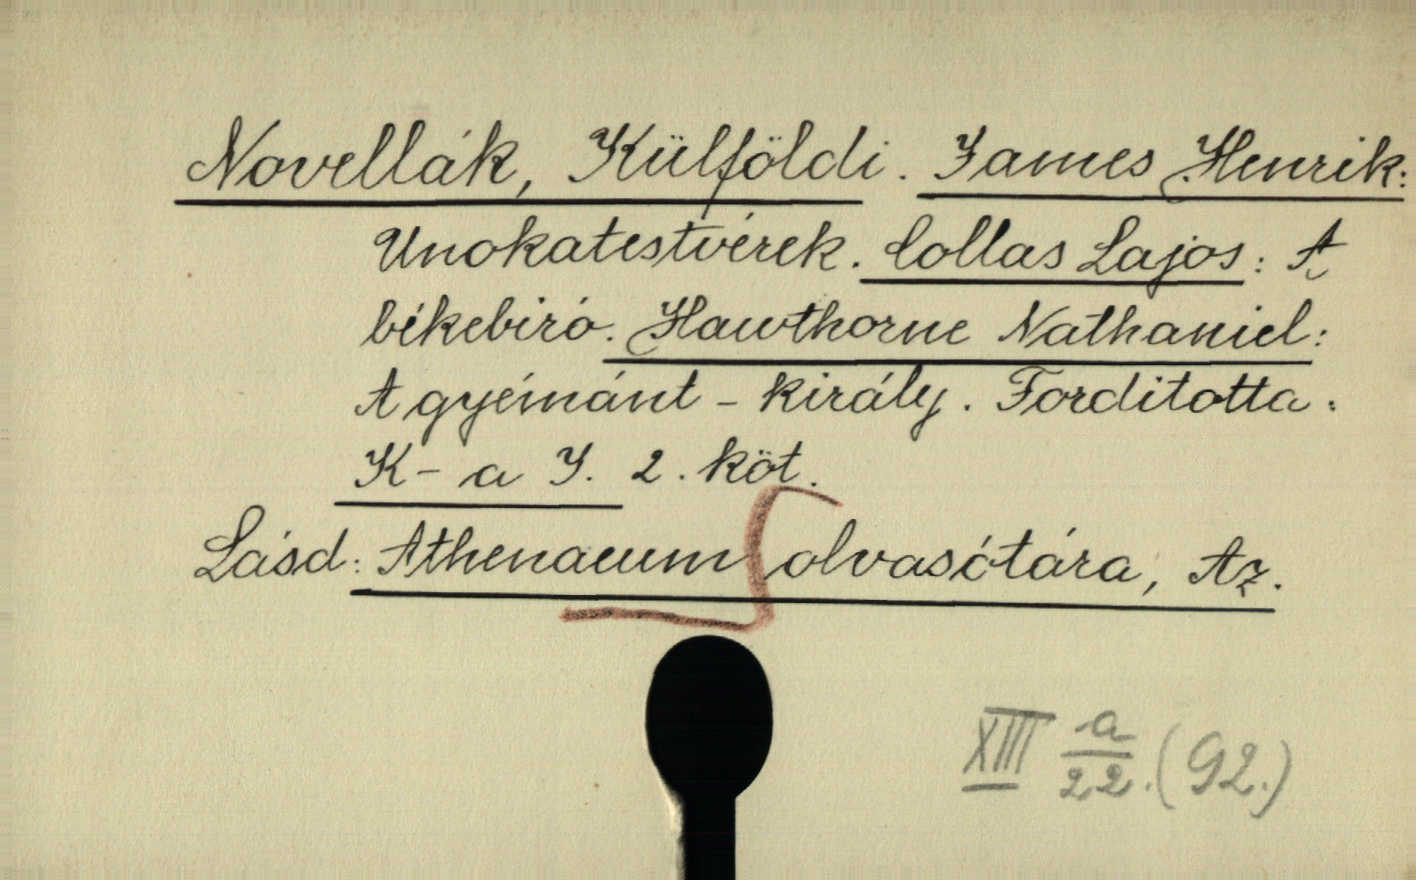 Novellák, Külföldi. James Henrik:
Unokatestvérek. Collas Lajos: A
békebiró. Hawthorne Nathaniel:
A gyémánt - király. Forditotta:
K- a J. 2. köt.
Lásd: Athenaeum olvasótára, Az.
XIII a/22. (92.)